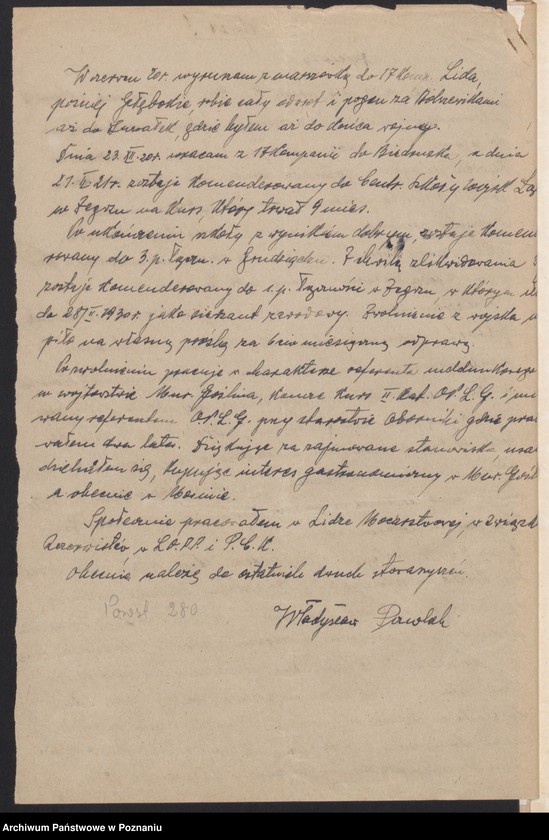 W czerwcu 20r. wyruszam z marszówką do 17 komp. Lida,
później Głębokie, robię cały odwrót i pogoń za Bolszewikami
aż do Suwałek, gdzie byłem aż do końca wojny.
Dnia 23.XII.20r. wracam z 17 Kompanii do Biedruska, a dnia
21.II.21r. zostaję komenderowany do Centr. Szkoły Wojsk
w Zegrzu na Kurs, który trwał 9 mies.
Po ukończeniu szkoły z wynikiem dobrym, zostaję komen
rowany do 3.p. Łączn. w Grudziądzu. Z chwilą zlikwidowania
zostaję komenderowany do 1.p. Łączności w Zegrzu, w którym
do 28/II.1930r. jako sierżant zawodowy. Zwolnienie z wojska
piło na własną prośbę za 6cio miesięczną odprawą.
Po zwolnieniu pracuję w charakterze referenta
w wójtowstwie Mur. Goślina, kończę kurs II. O.P.L.G. i
wany referentem O.P.L.G. przy starostwie Oborniki gdzie prac
wałem dwa lata. Dziękując za zajmowane stanowisko, usa
dzielniłem się, kupując interes gastronomiczny w Mur. Gośl
a obecnie w Mosinie.
Społecznie pracowałem w Lidze Mocarstwowej, w Związk
Rezerwistów w L.O.P.P. i P.C.K.
Obecnie należę do ostatnich dwuch stowarzyszeń.
Powst 280
Władysław Pawlak
Archiwum Państwowe w Poznaniu